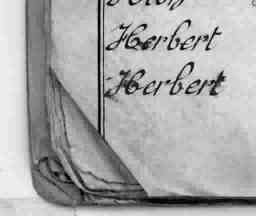 Herbert
Herbert